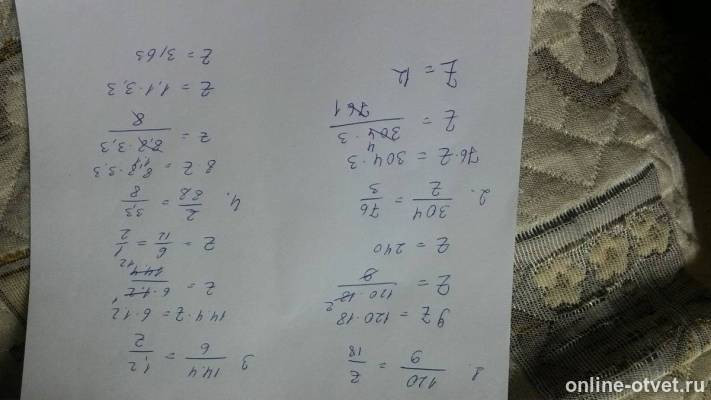 1. 120/9 = z/18
9z = 120·18
z = 120·18/9
z = 240
2. 304/z = 76/3
76·z = 304·3
z = 304·3/76
z = 12
3 14.4/6 = 1.2/z
14.4·z = 6·1.2
z = 6·1.2/14.4
z = 6/12 = 1/2
4. z/8.8 = 3,3/8
8·z = 8,8·3.3
z = 8,8·3,3/8
z = 1,1·3,3
z = 3,63
online-otvet.ru